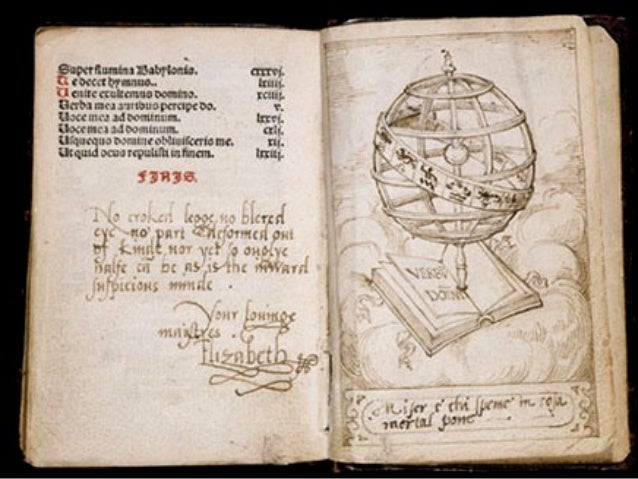 Super flumina Babylonis. cxxxvj.
Te decet hymnus.. lxiiij.
Uenite exultemus domino. xciiij.
Uerba mea auribus percipe do. v.
Uoce mea ad dominum. lxxvj.
Uoce mea ad dominum. cxlj.
Usquequo domine obliuisceris me. xij.
Ut quid deus repulisti in finem. lxxiij.
FINIS.
No croked legge, no blered
eye no part deformed out
of kinde nor yet so ouglye
halfe can be as is the inward
suspicious minde .
Your lovinge
maistres .
Elizabeth
VERBŪ
DOM̄I
Miser è chi speme in cosa
mortal pone